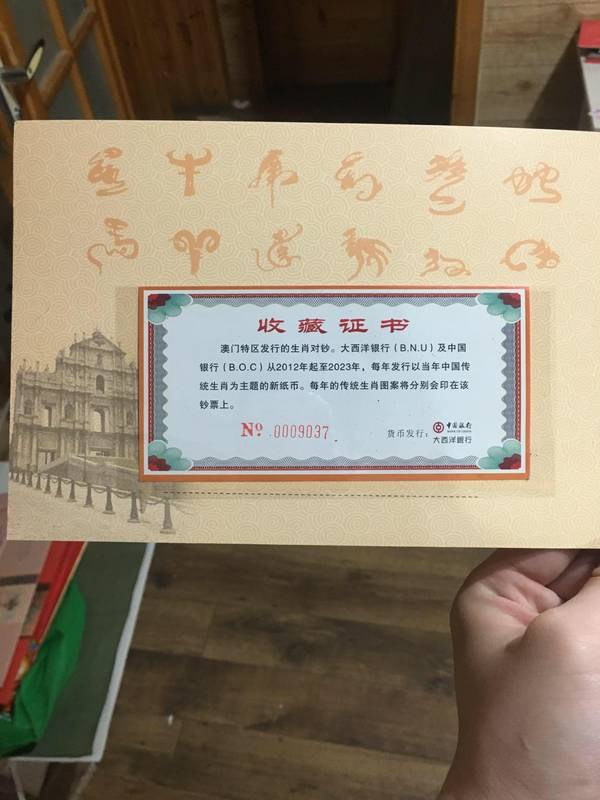 收藏证书
澳门特区发行的生肖对钞。大西洋银行(B.N.U)及中国
银行(B.O.C)从2012年起至2023年,每年发行以当年中国传
统生肖为主题的新纸币。每年的传统生肖图案将分别会印在该
钞票上。
№ 0009037
货币发行:
中国银行
BANK OF CHINA
大西洋银行